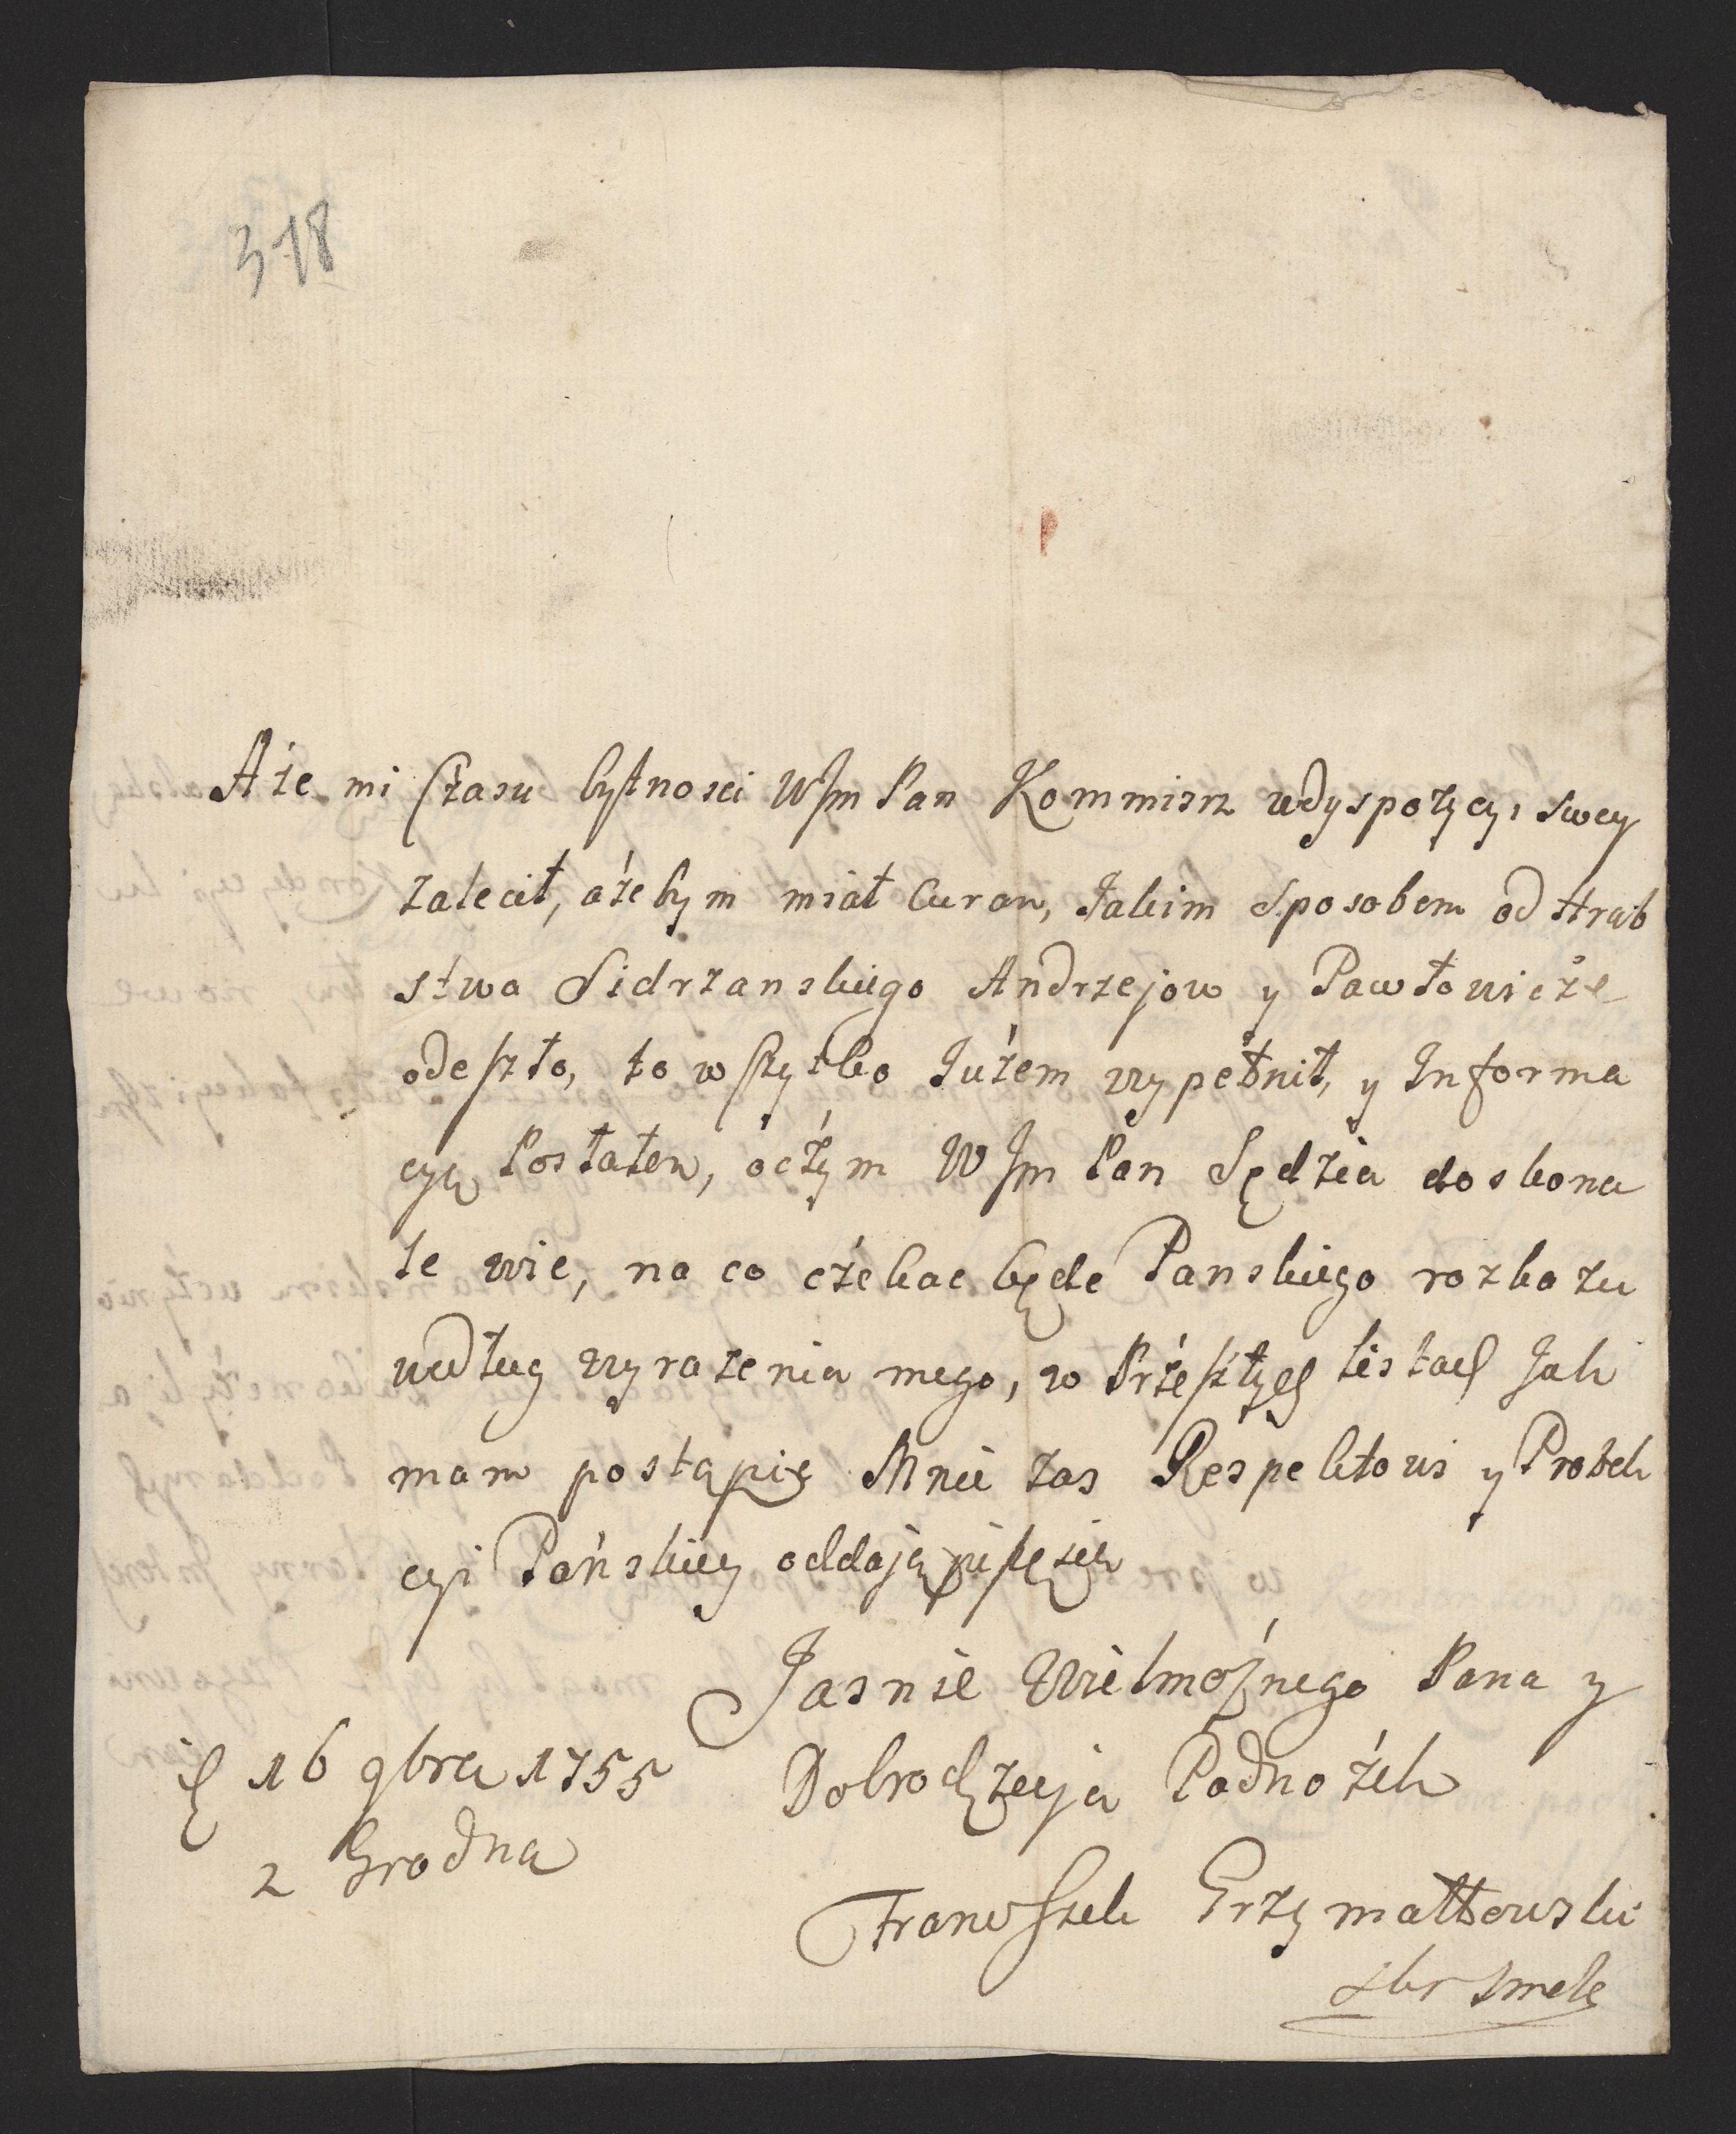 318
A że mi Czasu bytnosci WJm Pan Kommisrz wdyspozycyi swey
zalecił, ażebym miał Curam, Jakim Sposobem od Hrab
stwa Sidrzanskiego Andrzejow y Pawłowicze
odeszło, to wszytko Jużem wypełnił, y Informa
cyą Posłałem, oczym WJm Pan Sędzia doskona
le wie, na co czekac będe Panskiego rozkazu
według wyrazenia mego, w Przeszłych listach Jak
mam postąpić Mnie zas Respektowi y Protek
cyi Pańskiey oddając piszę się
Jasnie Wielmożnego Pana y
Dobrodzieja Podnożek
d 16 9bra 1755
z Grodna
Franciszek Grzymałłowski